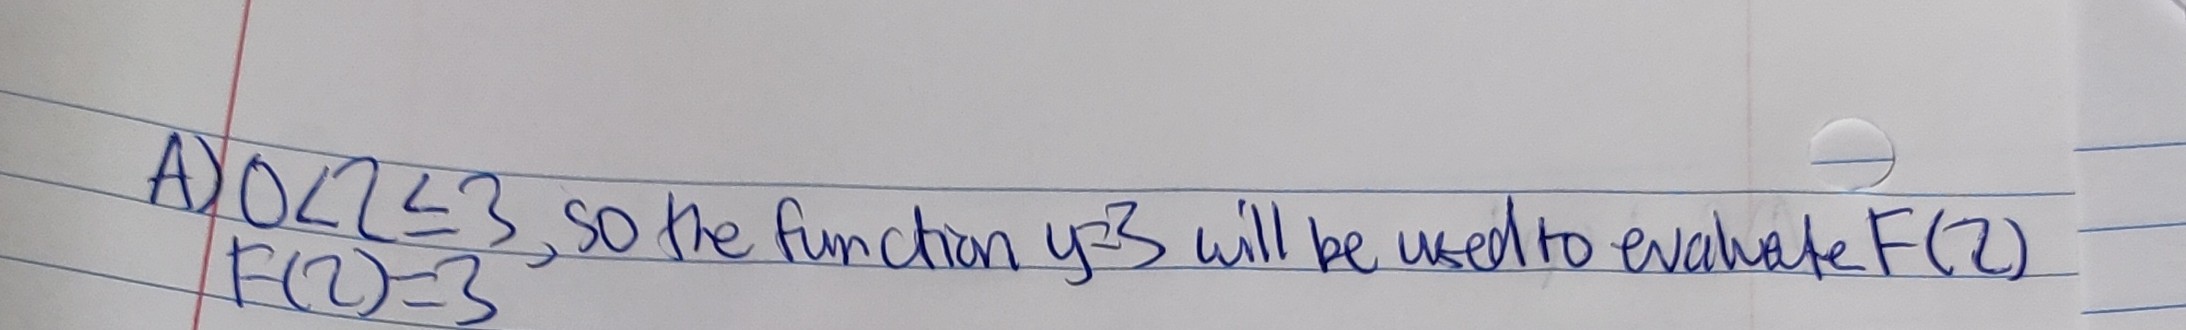 A) 0<2≤3, so the function y=3 will be used to evaluate F(2)
F(2)=3